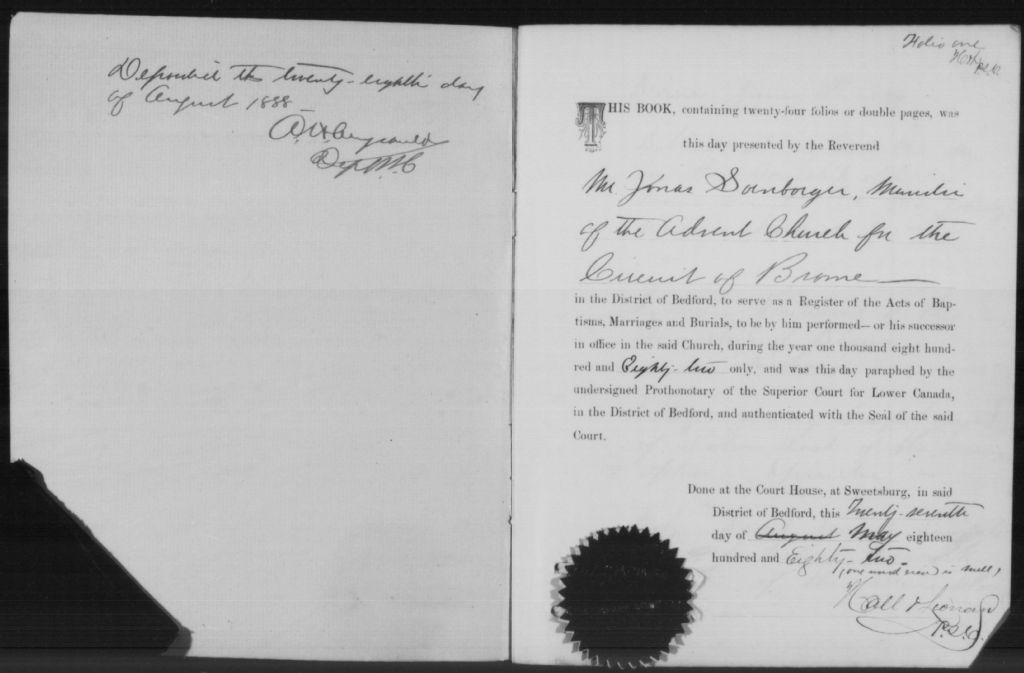 Deposited the twenty-eighth day
of August 1888
Folio one
THIS BOOK, containing twenty-four folios or double pages, was
this day presented by the Reverend
Mr Jonas Sornborger, Minister
of the Advent Church for the
Circuit of Brome
in the District of Bedford, to serve as a Register of the Acts of Bap-
tisms, Marriages and Burials, to be by him performed—or his successor
in office in the said Church, during the year one thousand eight hund-
red and Eighty-two only, and was this day paraphed by the
undersigned Prothonotary of the Superior Court for Lower Canada,
in the District of Bedford, and authenticated with the Seal of the said
Court.
Done at the Court House, at Sweetsburg, in said
District of Bedford, this Twenty-seventh
day of August May eighteen
hundred and Eighty-two.
(one word erased is null)
Hall & Leonard
P.S.C.